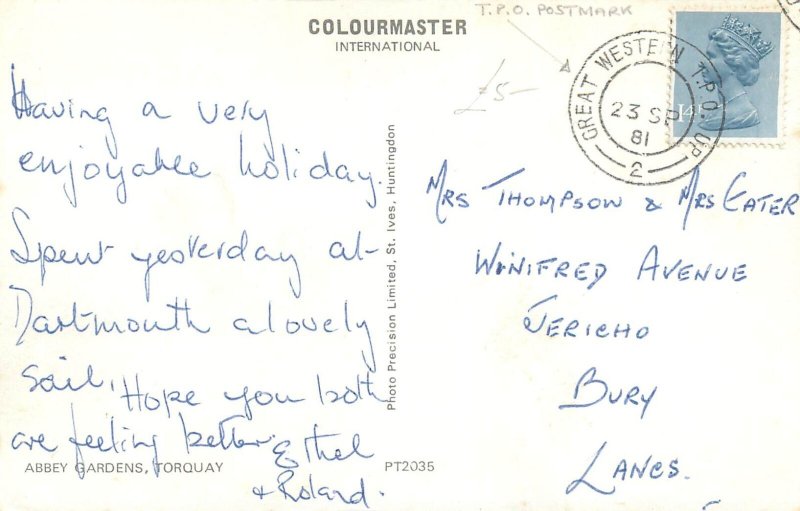 COLOURMASTER
INTERNATIONAL
T.P.O. POSTMARK
£5-
GREAT WESTERN T.P.O. UP
23 SP
81
2
14
Having a very
enjoyable holiday.
Spent yesterday at
Dartmouth a lovely
sail, Hope you both
are feeling better. Ethel
+ Roland.
ABBEY GARDENS, TORQUAY
PT2035
Photo Precision Limited, St. Ives, Huntingdon
MRS THOMPSON & MRS EATER
WINIFRED AVENUE
JERICHO
BURY
LANCS.